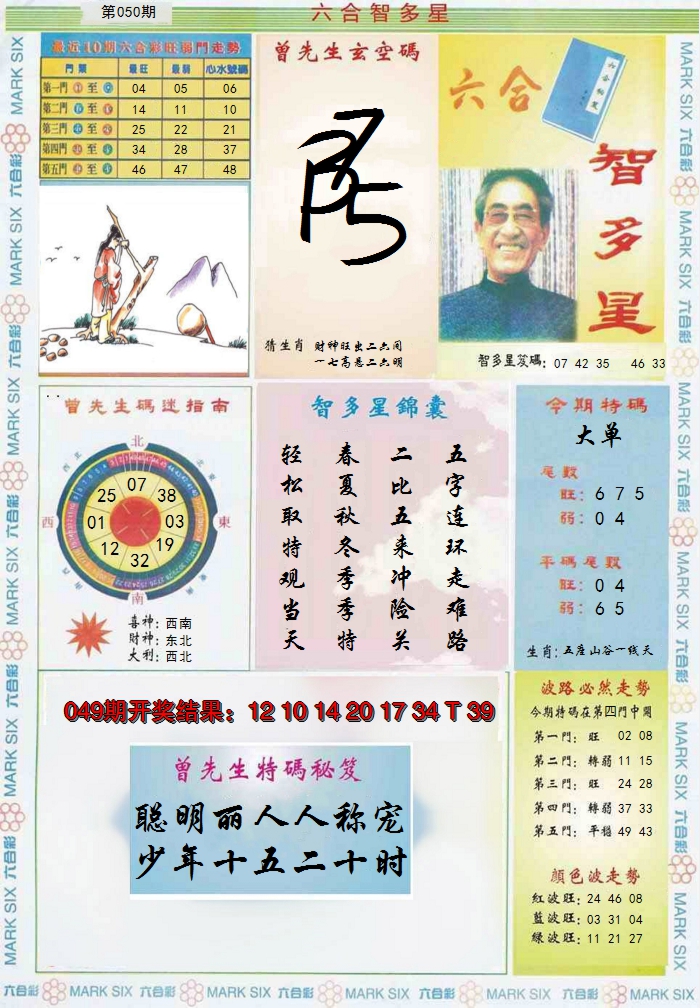 第050期
六合智多星
最近10期六合彩旺弱門走勢
門類 最旺 最弱 心水號碼
第一門 至 04 05 06
第二門 至 14 11 10
第三門 至 25 22 21
第四門 至 34 28 37
第五門 至 46 47 48
曾先生玄空碼
猜生肖 财神旺出二六同
一七高悬二六明
六合
智多星
智多星笈碼: 07 42 35 46 33
曾先生碼迷指南
北
西
東
南
25 07 38
01 03
12 32 19
喜神: 西南
財神: 东北
大利: 西北
智多星錦囊
五字连环走难路
二比五来冲险关
春夏秋冬季季特
轻松取特观当天
今期特碼
大单
尾數
旺: 6 7 5
弱: 0 4
平碼尾數
旺: 0 4
弱: 6 5
生肖: 五座山谷一线天
049期开奖结果: 12 10 14 20 17 34 T 39
曾先生特碼秘笈
聪明丽人人称宠
少年十五二十时
波路必然走勢
今期特碼在第四門中開
第一門: 旺 02 08
第二門: 轉弱 11 15
第三門: 旺 24 28
第四門: 轉弱 37 33
第五門: 平穩 49 43
顏色波走勢
紅波旺: 24 46 08
藍波旺: 03 31 04
綠波旺: 11 21 27
MARK SIX 六合彩